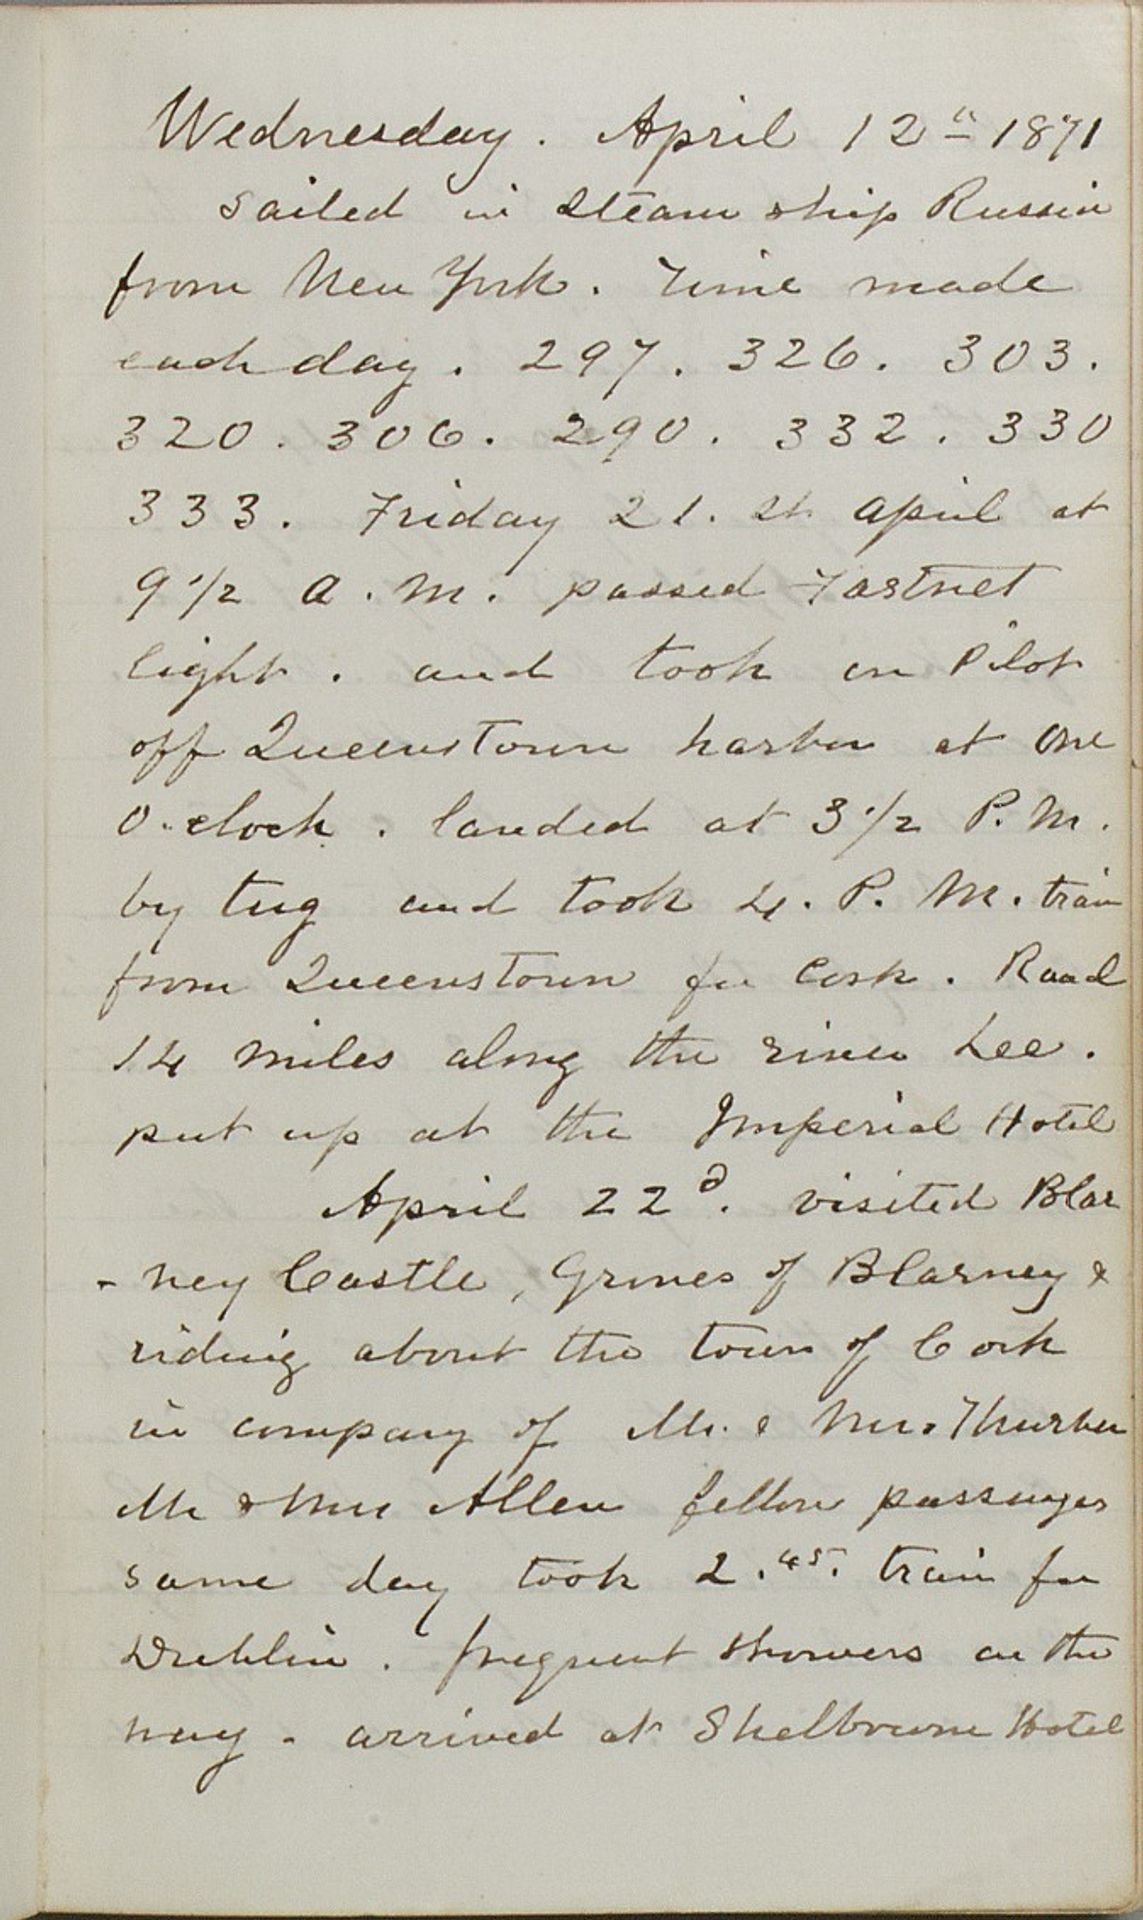 Wednesday. April 12th 1871
Sailed in Steam ship Russia
from New York. Time made
each day. 297. 326. 303.
320. 306. 290. 332. 330
333. Friday 21.st April at
9 1/2 A.M. passed Fastnet
light. and took on Pilot
off Queenstown harbor at One
O.clock. landed at 3 1/2 P.M.
by tug and took 4. P.M. train
from Queenstown for Cork. Road
14 miles along the river Lee.
put up at the Imperial Hotel
April 22d. visited Blar
-ney Castle, Groves of Blarney &
riding about the town of Cork
in company of Mr. & Mrs. Thurber
Mr & Mrs Allen fellow passenges
same day took 2.45. train for
Dublin. frequent showers on the
way. arrived at Shelbourne Hotel